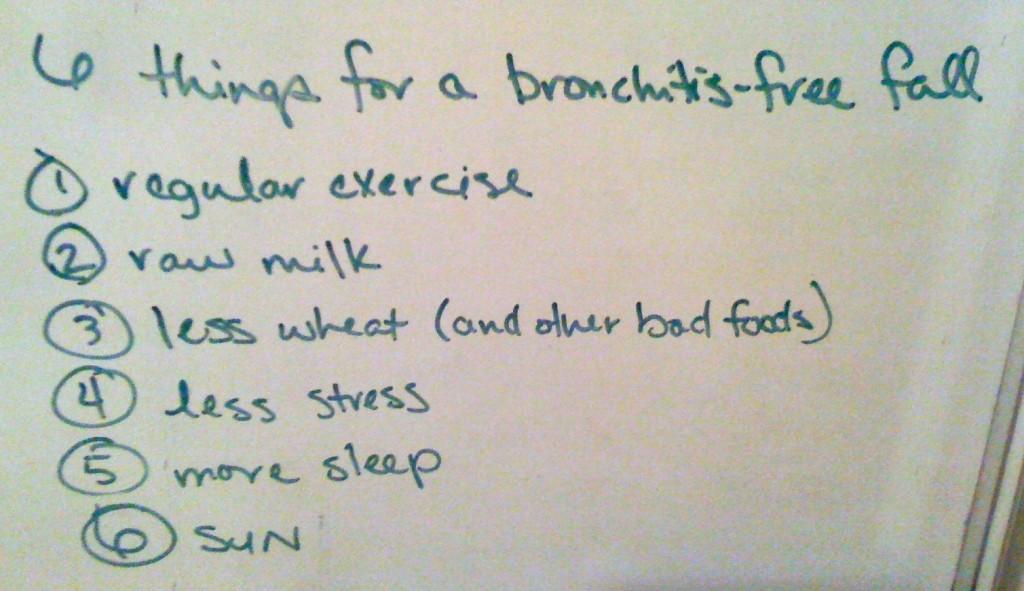 6 things for a bronchitis-free fall
1 regular exercise
2 raw milk
3 less wheat (and other bad foods)
4 less stress
5 more sleep
6 SUN